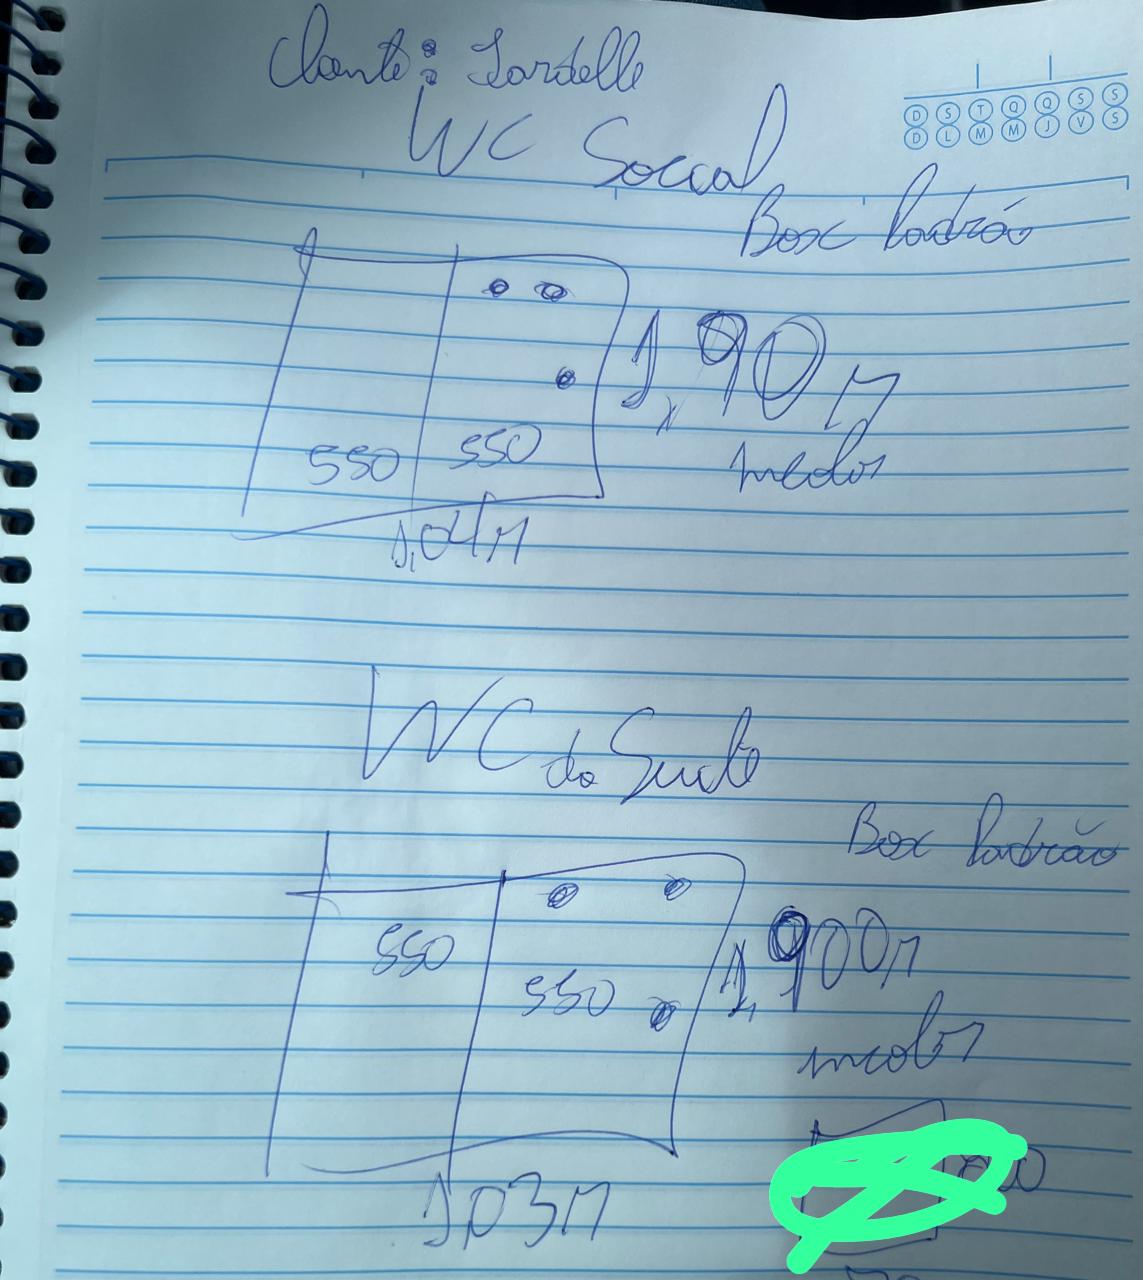 Cliente: Jardelle
WC Social
D S T Q Q S S
D L M M J V S
Box Padrão
1,90 M
incolor
550 550
1,04 M
WC da Suite
Box Padrão
550
550
1,900 M
incolor
1,03 M